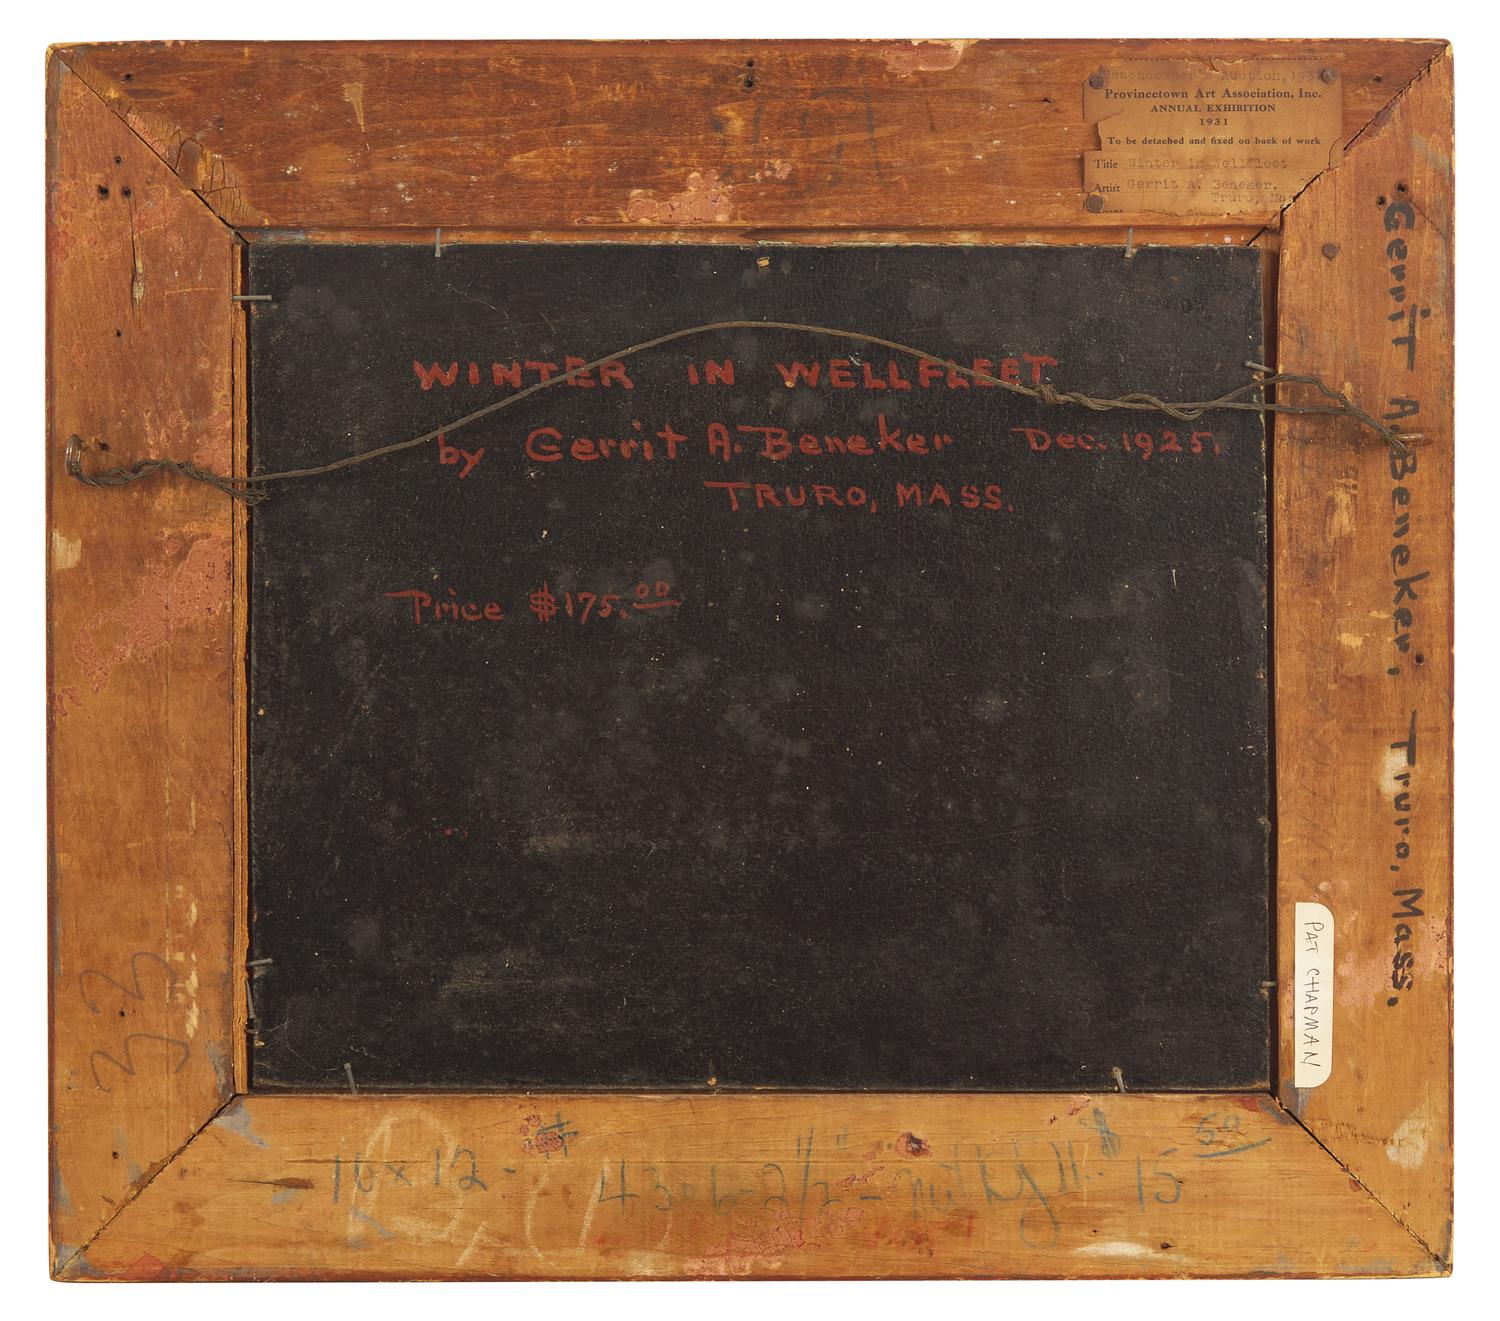 Auction, 193
Provincetown Art Association, Inc.
ANNUAL EXHIBITION
1931
To be detached and fixed on back of work
Title Winter in Wellfleet
Artist Gerrit A. Beneker.
Truro, Mas
WINTER IN WELLFLEET
by Gerrit A. Beneker Dec. 1925.
TRURO, MASS.
Price $175.00
Gerrit A. Beneker. Truro, Mass.
PAT CHAPMAN
33
16 x 12 - # 4306-2 1/2" - $15 50